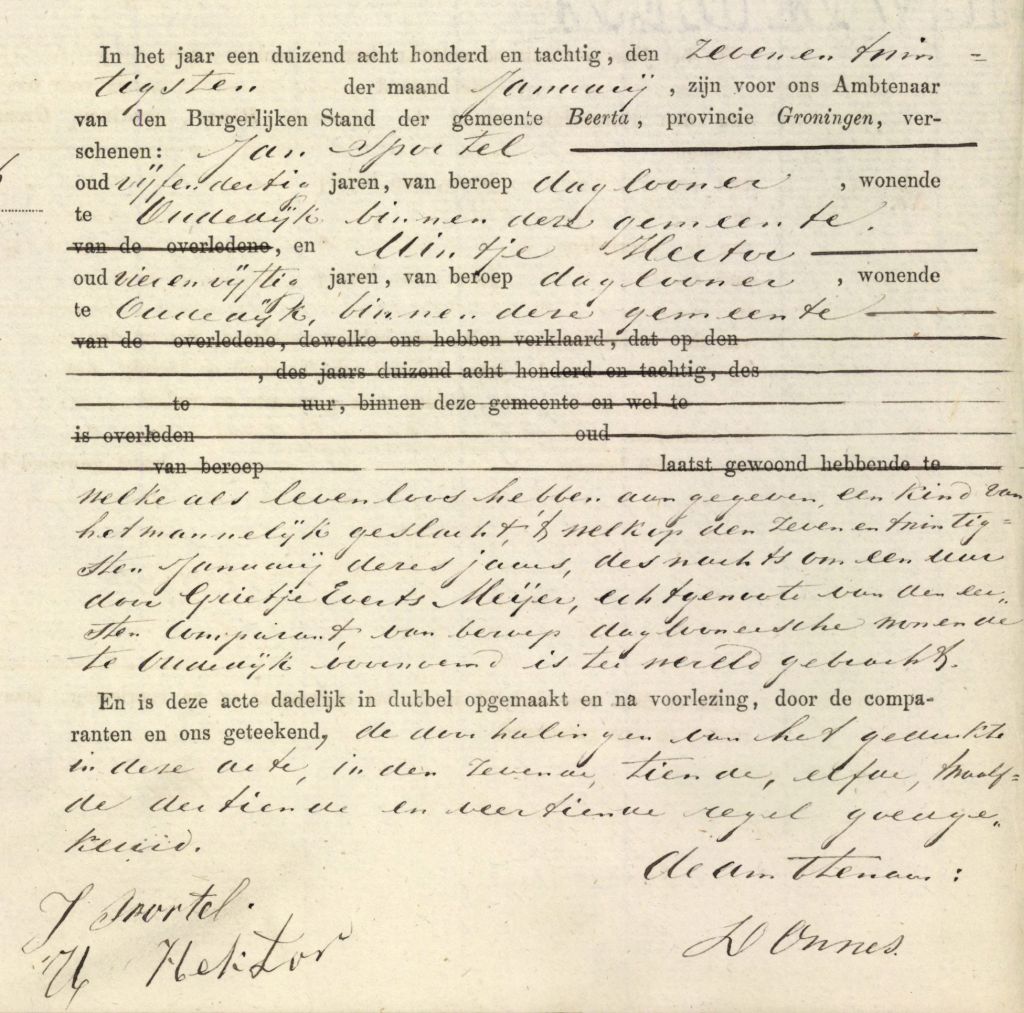 In het jaar een duizend acht honderd en tachtig, den zeven en twin=
tigsten der maand Januarij, zijn voor ons Ambtenaar
van den Burgerlijken Stand der gemeente Beerta, provincie Groningen, ver-
schenen: Jan Sportel
oud vijf en dertig jaren, van beroep daglooner, wonende
te Oudedijk binnen deze gemeente.
van de overledene, en Uintje Hector
oud vier en vijftig jaren, van beroep daglooner, wonende
te Oudedijk, binnen deze gemeente
van de overledene, dewelke ons hebben verklaard, dat op den
, des jaars duizend acht honderd en tachtig, des
te uur, binnen deze gemeente en wel te
is overleden oud
van beroep laatst gewoond hebbende te
welke als levenloos hebben aangegeven, een kind van
het mannelijk geslacht, welk op den zeven en twintig=
sten Januarij dezes jaars, des nachts om een uur
door Grietje Everts Meijer, echtgenoote van den eer„
sten Comparant, van beroep daglooonersche wonende
te Oudedijk voornoemd is ter wereld gebracht.
En is deze acte dadelijk in dubbel opgemaakt en na voorlezing, door de compa-
ranten en ons geteekend, de doorhalingen van het gedrukte
in deze acte, in den zevende, tiende, elfde, twaalf=
de dertiende en veertiende regel goedge„
keurd.
de ambtenaar:
J Sportel.
U Hektor
D Onnes.